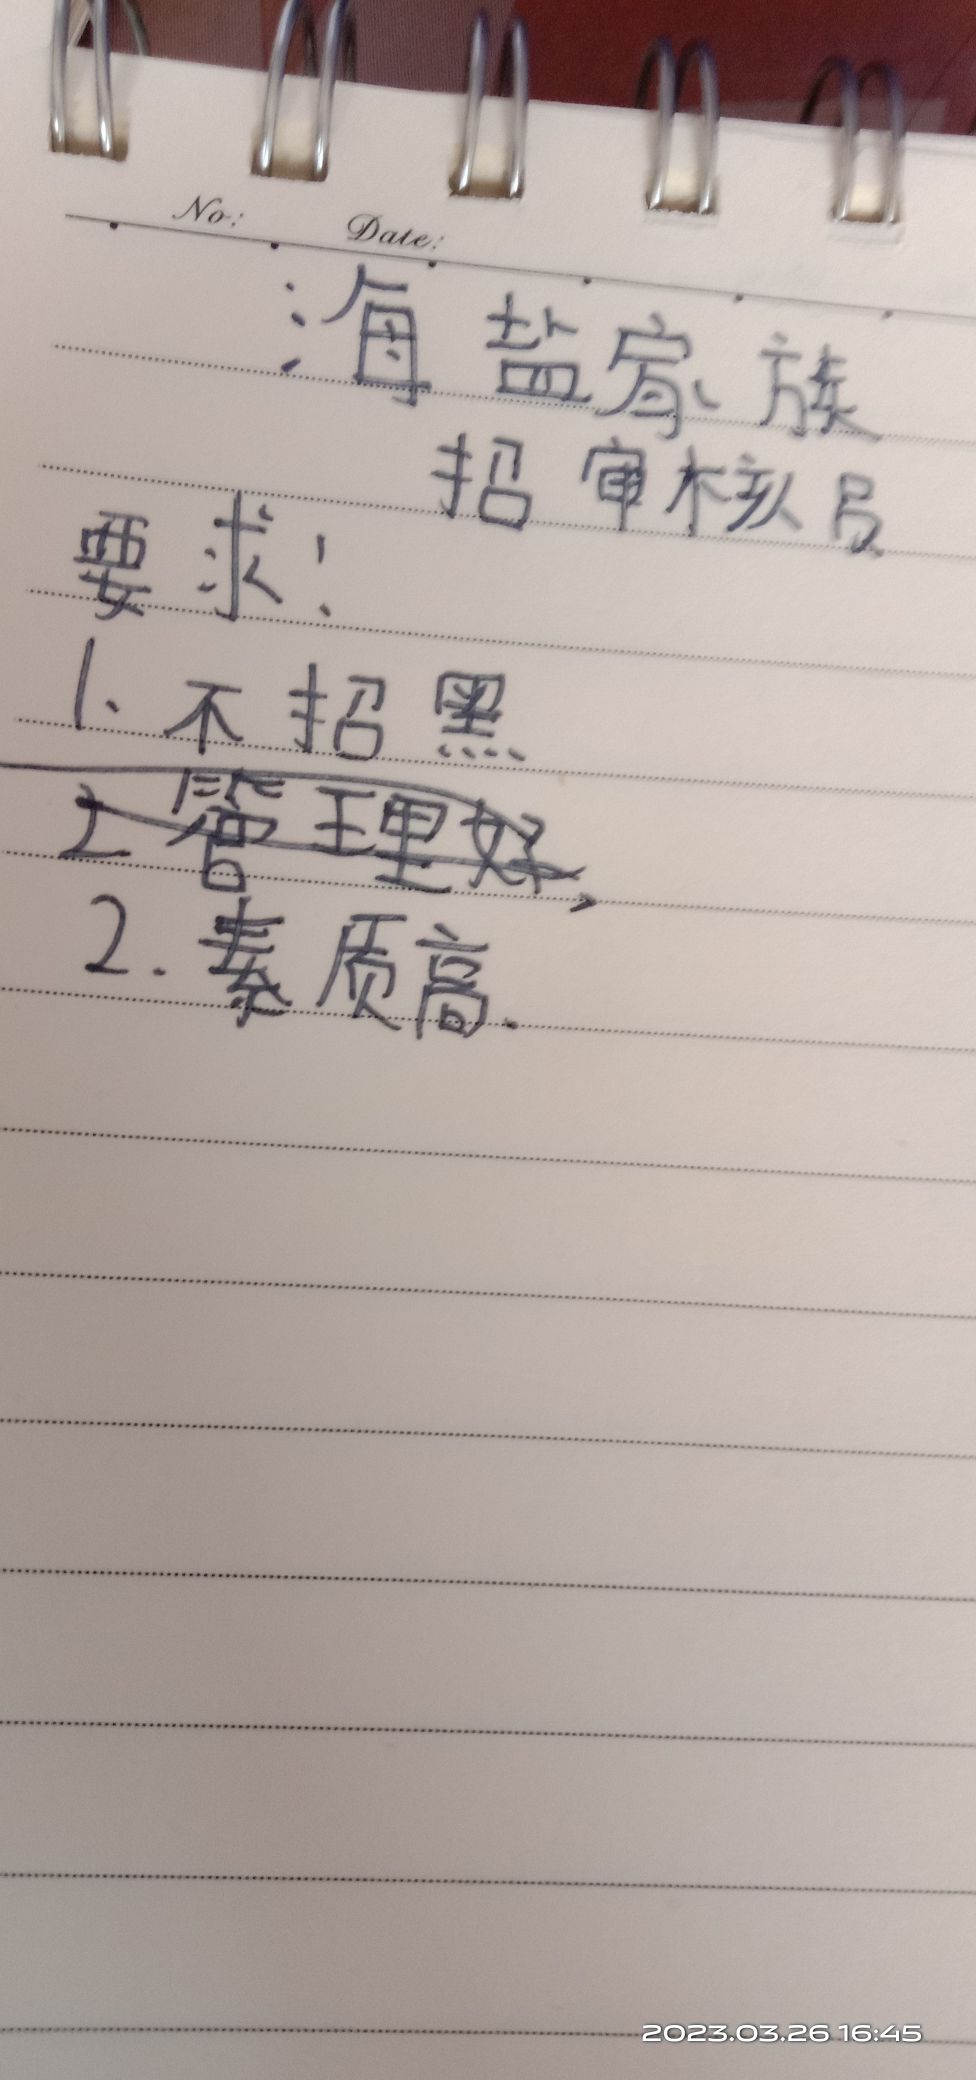 No: Date:
海盐家族
招审核员
要求!
1、不招黑
2 管理好,
2.素质高.
2023.03.26 16:45